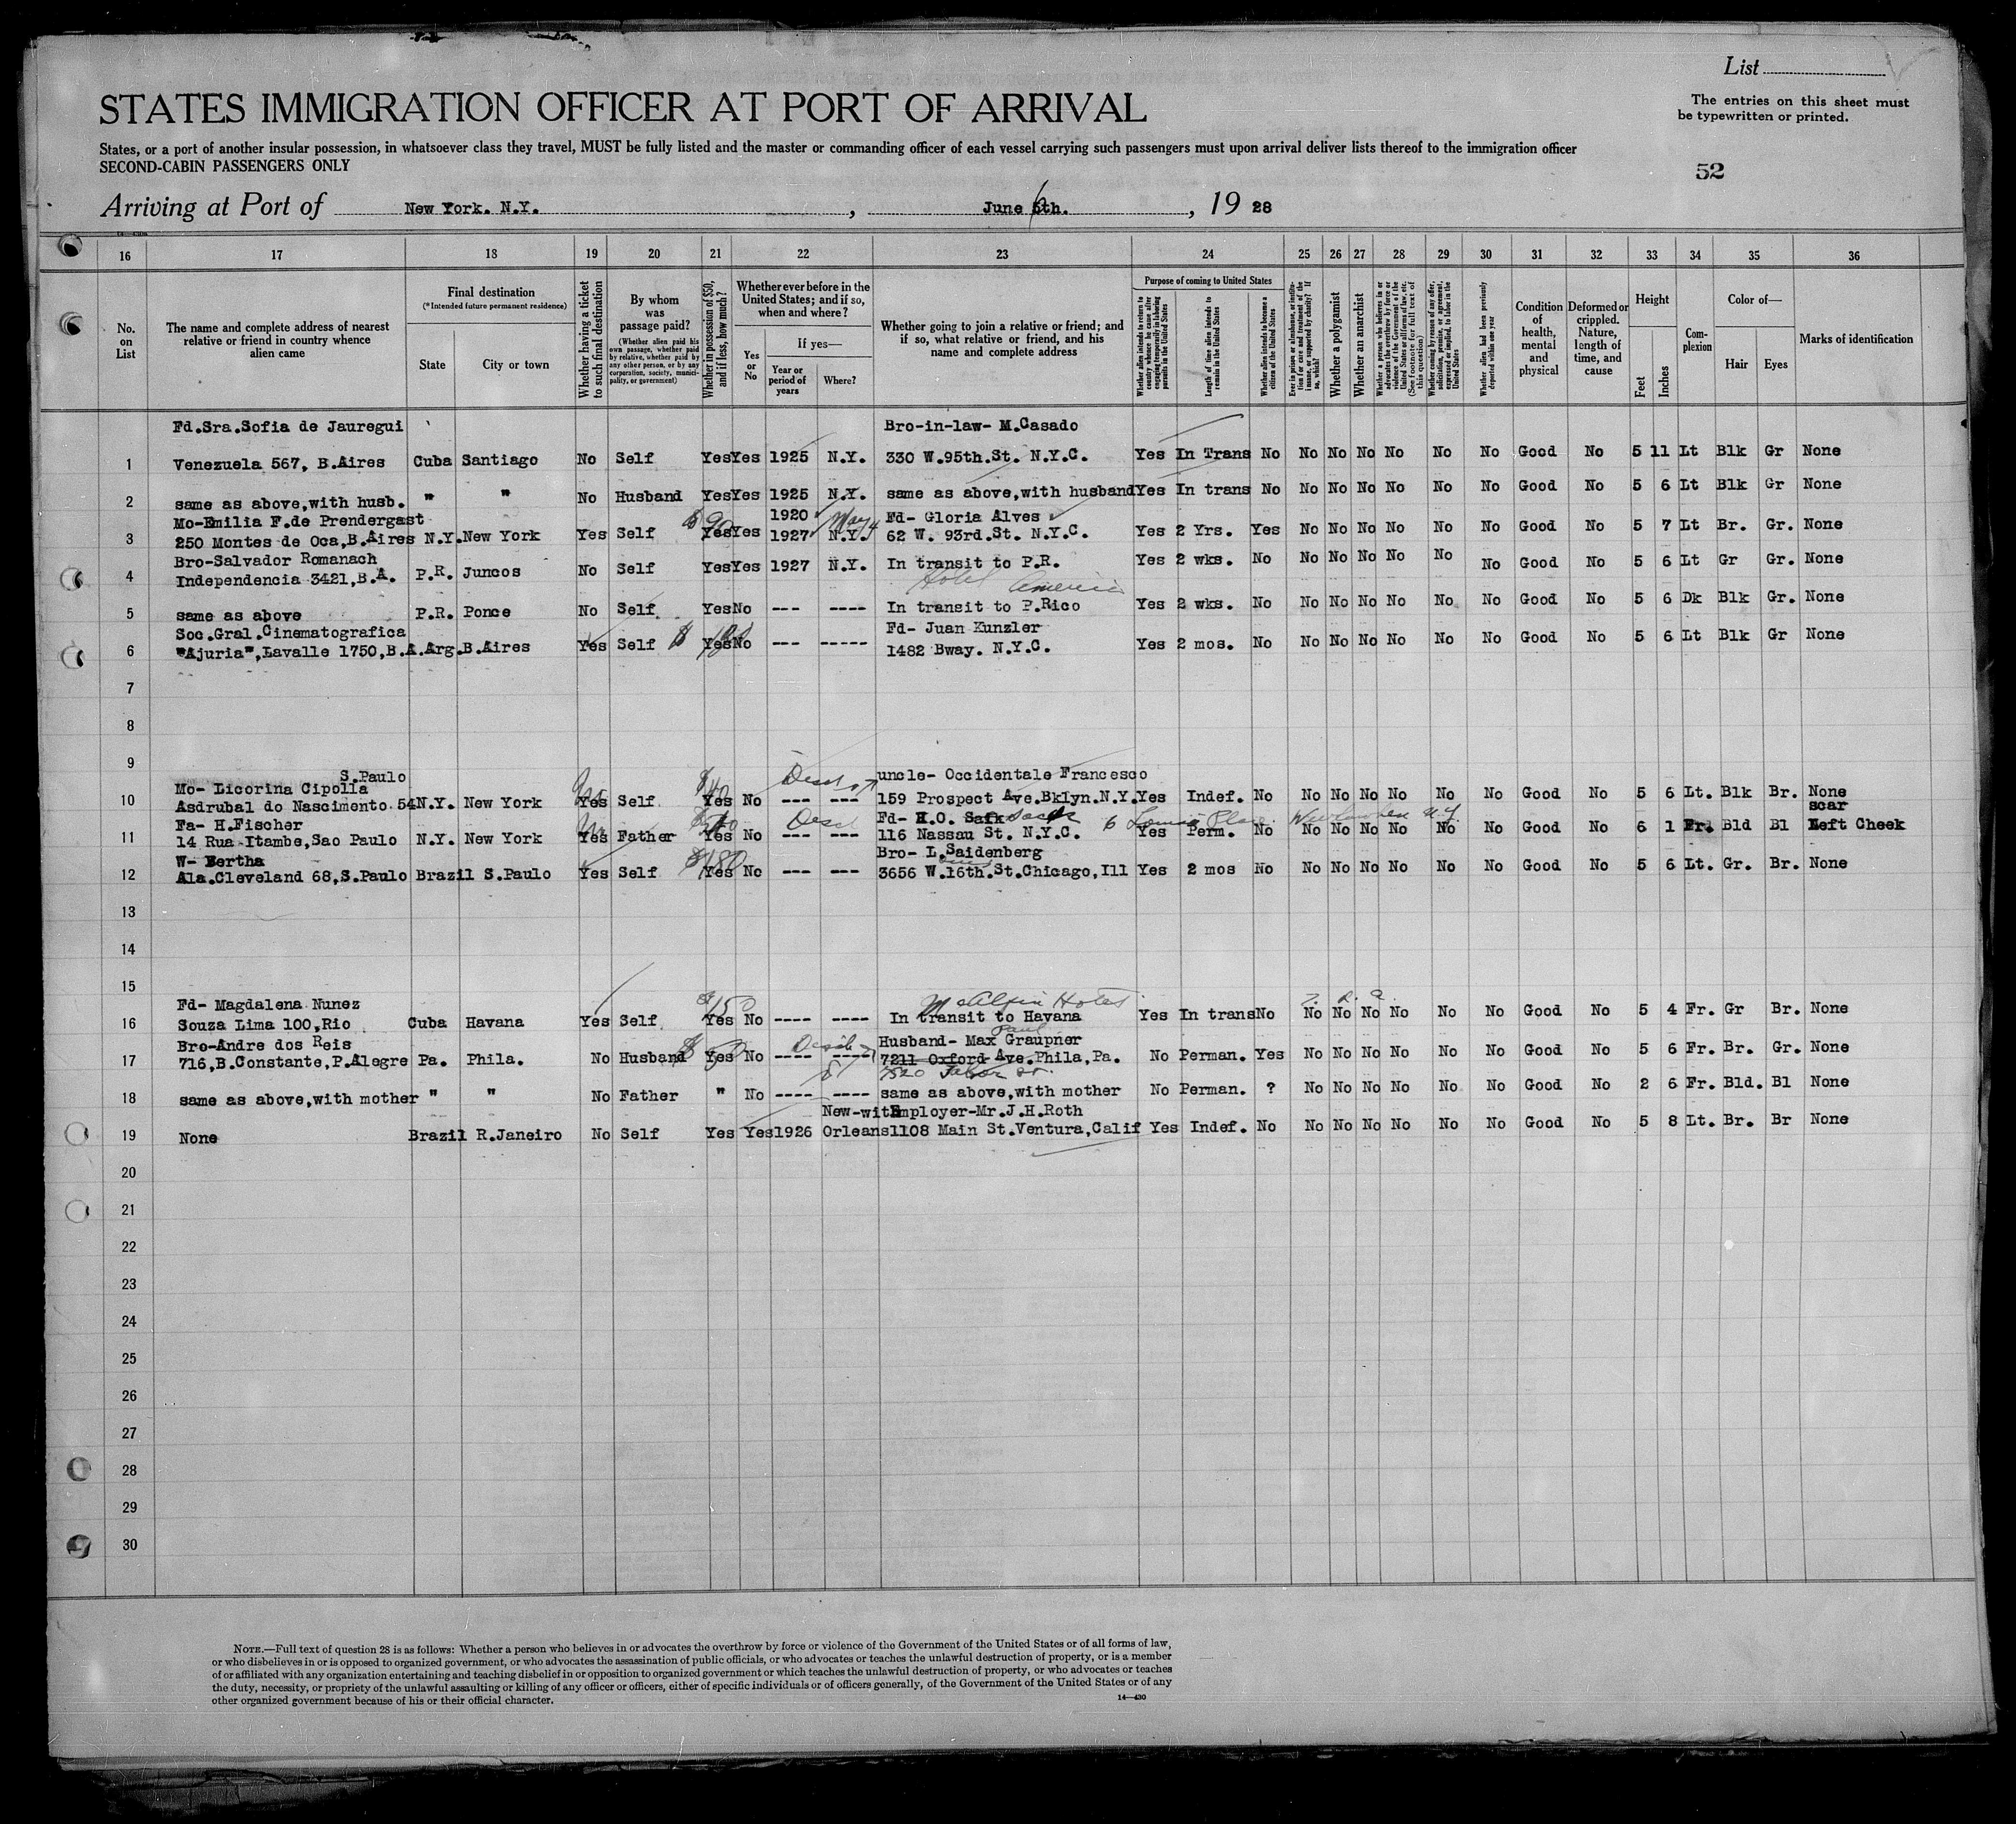 List
STATES IMMIGRATION OFFICER AT PORT OF ARRIVAL
The entries on this sheet must
be typewritten or printed.
States, or a port of another insular possession, in whatsoever class they travel, MUST be fully listed and the master or commanding officer of each vessel carrying such passengers must upon arrival deliver lists thereof to the immigration officer
SECOND-CABIN PASSENGERS ONLY
52
Arriving at Port of New York. N.Y. , June 6th. , 19 28
16 17 18 19 20 21 22 23 24 25 26 27 28 29 30 31 32 33 34 35 36
No.
on
List
The name and complete address of nearest
relative or friend in country whence
alien came
Final destination
(*Intended future permanent residence)
State
City or town
Whether having a ticket
to such final destination
By whom
was
passage paid?
(Whether alien paid his
own passage, whether paid
by relative, whether paid by
any other person, or by any
corporation, society, munici-
pality, or government)
Whether in possession of $50,
and if less, how much?
Whether ever before in the
United States; and if so,
when and where?
Yes
or
No
If yes—
Year or
period of
years
Where?
Whether going to join a relative or friend; and
if so, what relative or friend, and his
name and complete address
Purpose of coming to United States
Whether alien intends to return to
country whence he came after
engaging temporarily in laboring
pursuits in the United States
Length of time alien intends to
remain in the United States
Whether alien intends to become a
citizen of the United States
Ever in prison or almshouse, or institu-
tion for care and treatment of the
insane, or supported by charity? If
so, which?
Whether a polygamist
Whether an anarchist
Whether a person who believes in or
advocates the overthrow by force or
violence of the Government of the
United States or all forms of law, etc.
(See footnote for full text of
this question)
Whether coming by reason of any offer,
solicitation, promise, or agreement,
expressed or implied, to labor in the
United States
Whether alien had been previously
deported within one year
Condition
of
health,
mental
and
physical
Deformed or
crippled.
Nature,
length of
time, and
cause
Height
Feet
Inches
Com-
plexion
Color of—
Hair
Eyes
Marks of identification
Fd.Sra.Sofia de Jauregui Bro-in-law- M.Casado
1 Venezuela 567, B.Aires Cuba Santiago No Self Yes Yes 1925 N.Y. 330 W.95th.St. N.Y.C. Yes In Trans No No No No No No No Good No 5 11 Lt Blk Gr None
2 same as above,with husb. " " No Husband Yes Yes 1925 N.Y. same as above,with husband Yes In trans No No No No No No No Good No 5 6 Lt Blk Gr None
Mo-Emilia F.de Prendergast $90 1920 May 4 Fd- Gloria Alves
3 250 Montes de Oca,B.Aires N.Y. New York Yes Self Yes Yes 1927 N.Y. 62 W. 93rd.St. N.Y.C. Yes 2 Yrs. Yes No No No No No No Good No 5 7 Lt Br. Gr. None
Bro-Salvador Romanach
4 Independencia 3421,B.A. P.R. Juncos No Self Yes Yes 1927 N.Y. In transit to P.R. Yes 2 wks. No No No No No No No Good No 5 6 Lt Gr Gr. None
Hotel America
5 same as above P.R. Ponce No Self Yes No --- ---- In transit to P.Rico Yes 2 wks. No No No No No No No Good No 5 6 Dk Blk Gr. None
Soc.Gral.Cinematografica Fd- Juan Kunzler
6 "Ajuria",Lavalle 1750,B.A. Arg. B.Aires Yes Self $ Yes No --- ----- 1482 Bway. N.Y.C. Yes 2 mos. No No No No No No No Good No 5 6 Lt Blk Gr None
7
8
9
S.Paulo uncle- Occidentale Francesco
Mo- Licorina Cipolla
10 Asdrubal do Nascimento 54 N.Y. New York Yes Self Yes No --- --- 159 Prospect Ave.Bklyn.N.Y. Yes Indef. No No No No No No No Good No 5 6 Lt. Blk Br. None
Fa- H.Fischer Fd- H.O. Safk Sack 6 Place scar
11 14 Rua Itambe,Sao Paulo N.Y. New York Yes Father Yes No --- --- 116 Nassau St. N.Y.C. Yes Perm. No No No No No No No Good No 6 1 Fr. Bld Bl Left Cheek
W- Bertha $180 Bro- L.Saidenberg
12 Ala.Cleveland 68,S.Paulo Brazil S.Paulo Yes Self Yes No --- --- 3656 W.16th.St.Chicago,Ill Yes 2 mos No No No No No No No Good No 5 6 Lt. Gr. Br. None
13
14
15
Fd- Magdalena Nunez $150 McAlpin Hotel
16 Souza Lima 100,Rio Cuba Havana Yes Self Yes No ---- ---- In transit to Havana Yes In trans No No No No No No No Good No 5 4 Fr. Gr Br. None
Bro-Andre dos Reis Husband- Max Paul Graupner
17 716,B.Constante,P.Alegre Pa. Phila. No Husband Yes No ---- ---- 7211 Oxford Ave.Phila,Pa. No Perman. Yes No No No No No No Good No 5 6 Fr. Br. Gr. None
7520 Tabor
18 same as above,with mother " " No Father " No ---- ---- same as above,with mother No Perman. ? No No No No No No Good No 2 6 Fr. Bld. Bl None
New- with Employer-Mr.J.H.Roth
19 None Brazil R.Janeiro No Self Yes Yes 1926 Orleans 1108 Main St.Ventura,Calif Yes Indef. No No No No No No No Good No 5 8 Lt. Br. Br None
20
21
22
23
24
25
26
27
28
29
30
NOTE.—Full text of question 28 is as follows: Whether a person who believes in or advocates the overthrow by force or violence of the Government of the United States or of all forms of law,
or who disbelieves in or is opposed to organized government, or who advocates the assassination of public officials, or who advocates or teaches the unlawful destruction of property, or is a member
of or affiliated with any organization entertaining and teaching disbelief in or opposition to organized government or which teaches the unlawful destruction of property, or who advocates or teaches
the duty, necessity, or propriety of the unlawful assaulting or killing of any officer or officers, either of specific individuals or of officers generally, of the Government of the United States or of any
other organized government because of his or their official character.
14—430